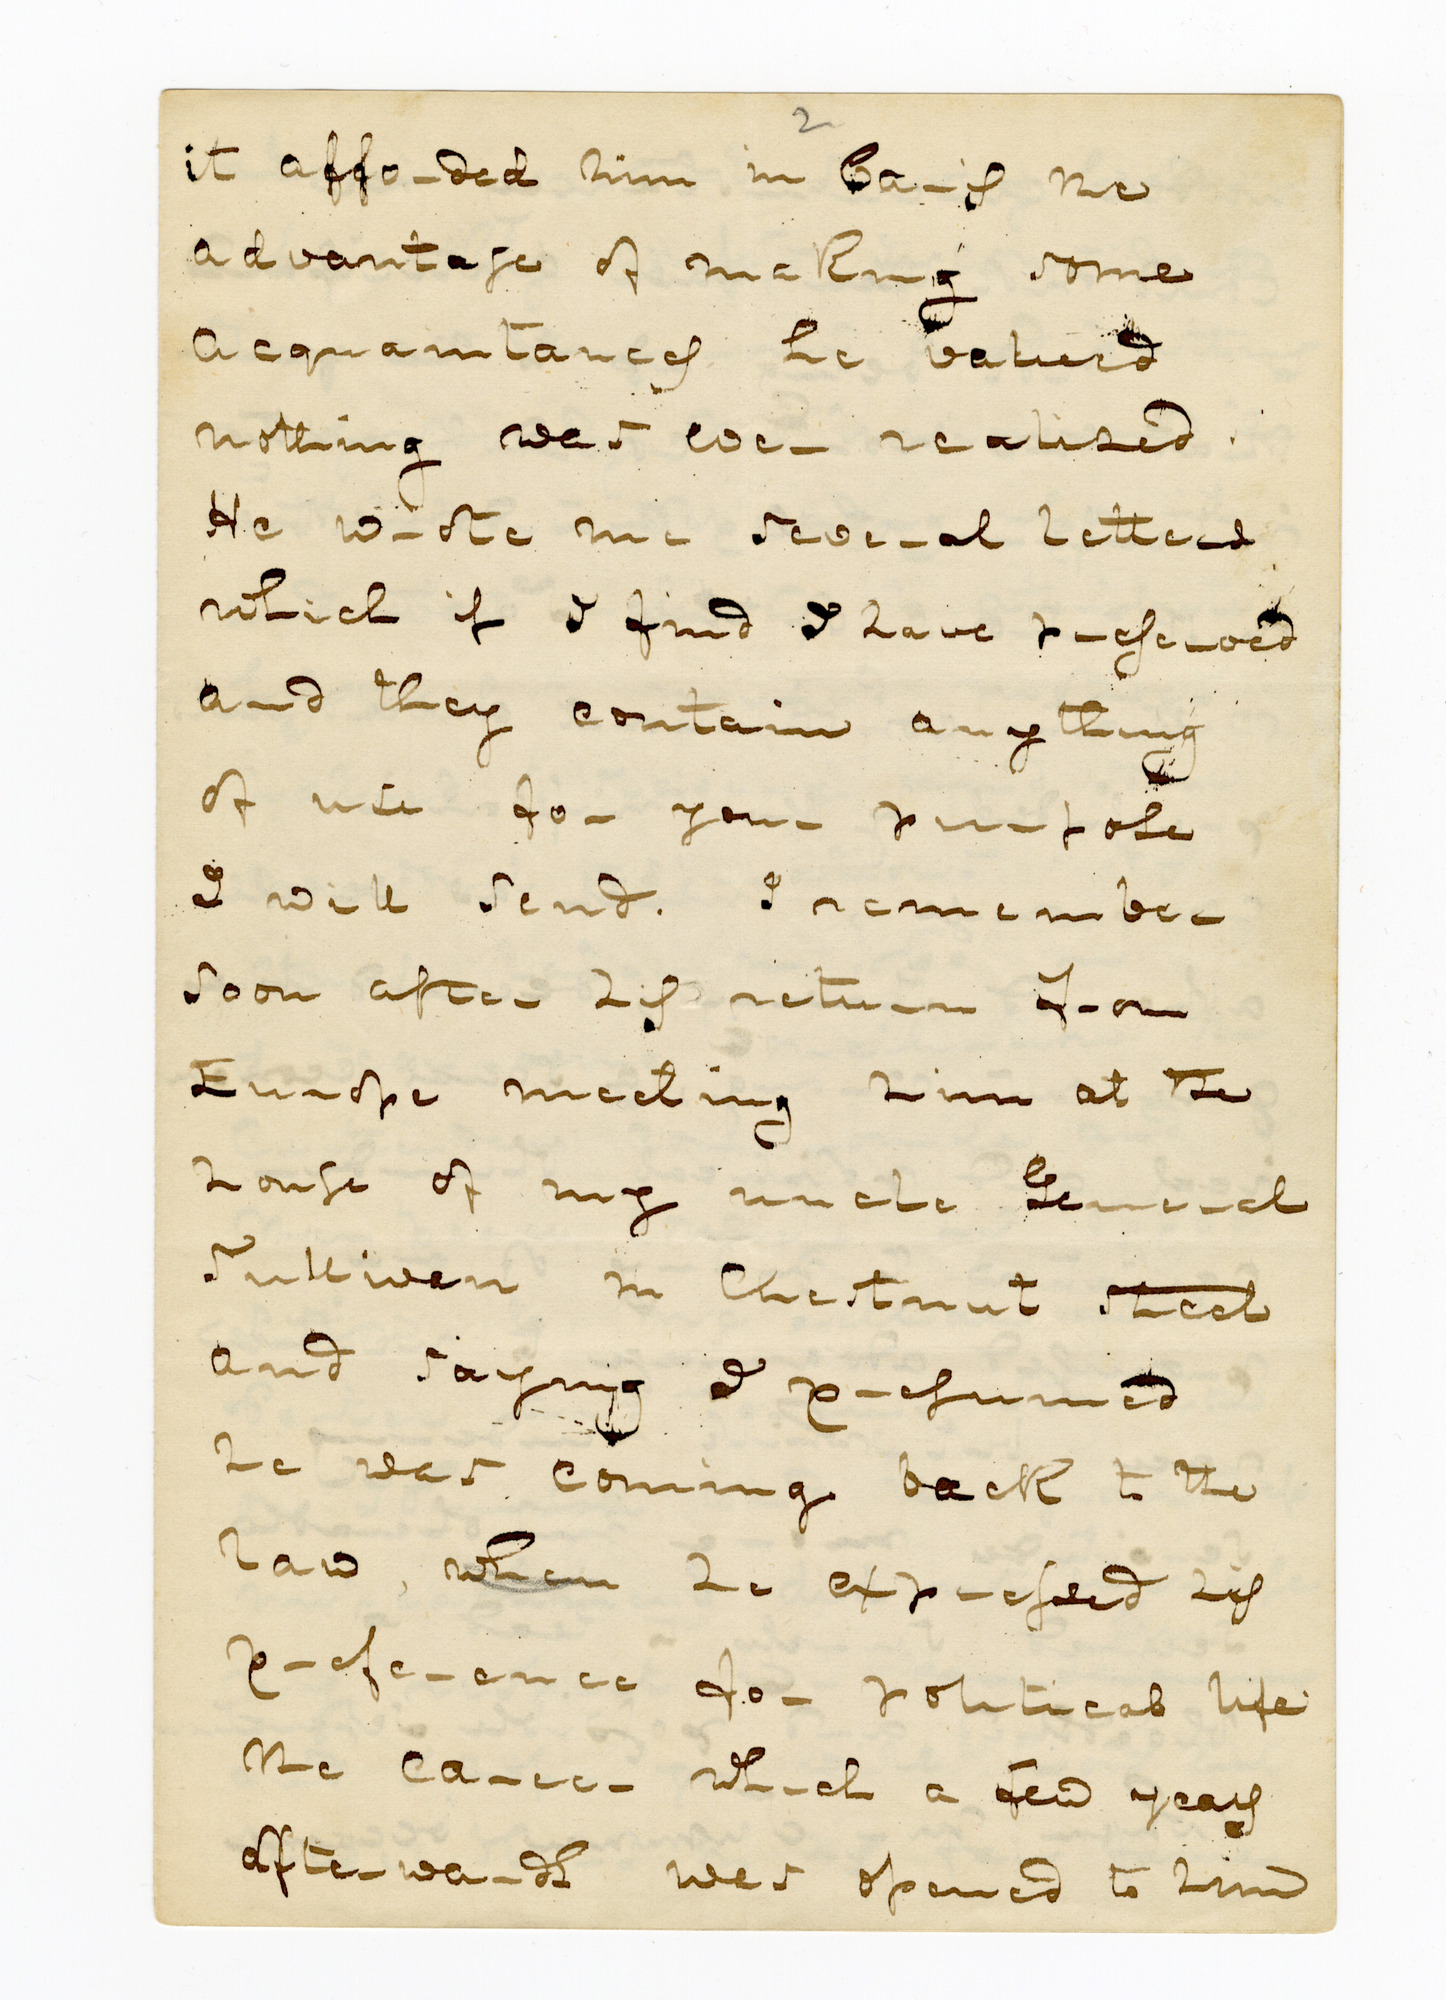 2
it afforded him in Paris the
advantage of making some
acquaintances he valued
nothing was ever realized.
He wrote me several letters
which if I find I have preserved
and they contain anything
of use for your purpose
I will send. I remember
soon after his return from
Europe meeting him at the
house of my uncle General
Sullivan in Chestnut street
and saying I presumed
he was coming back to the
law, when he expressed his
preference for political life
the career which a few years
afterwards was opened to him